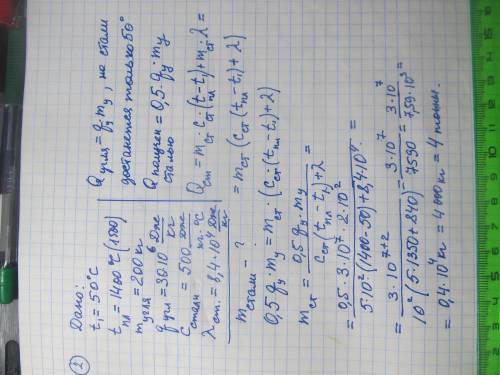 ②
Дано:
t₁ = 50°C
t пл = 1400°C (1500)
m угля = 200 кг
q угл = 30·10⁶ Дж/кг
C стали = 500 Дж/кг·°C
λ ст. = 8,4·10⁴ Дж/кг
m стали - ?
Q угля = q у · m у, но стали
достанется только 50%
Q получен сталью = 0,5·q у · m у
Q ст = m ст · c ст · (t пл - t₁) + m ст · λ =
= m ст (c ст (t пл - t₁) + λ)
0,5 q у · m у = m ст · (c ст · (t пл - t₁) + λ)
m ст = 0,5 q у · m у / (c ст (t пл - t₁) + λ) =
= 0,5·3·10⁷·2·10² / (5·10²(1400-50)+8,4·10⁴) =
= 3·10⁷⁺² / (10²(5·1350+840)) = 3·10⁷ / 7590 = 3·10⁷ / (7,59·10³) =
= 0,4·10⁴ кг = 4000 кг = 4 тонны.